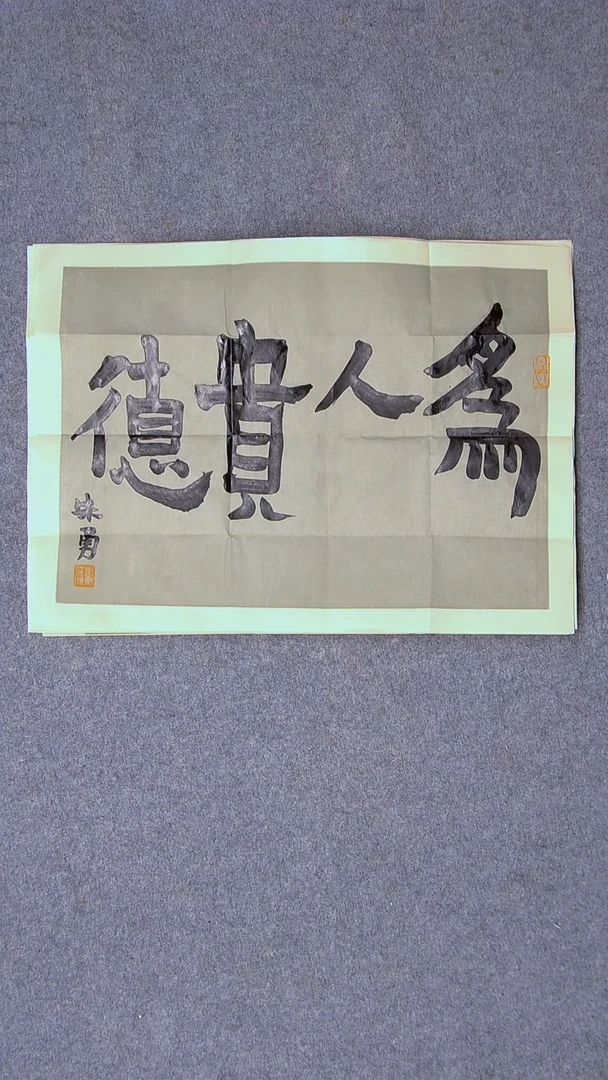 為人貴德
朱勇